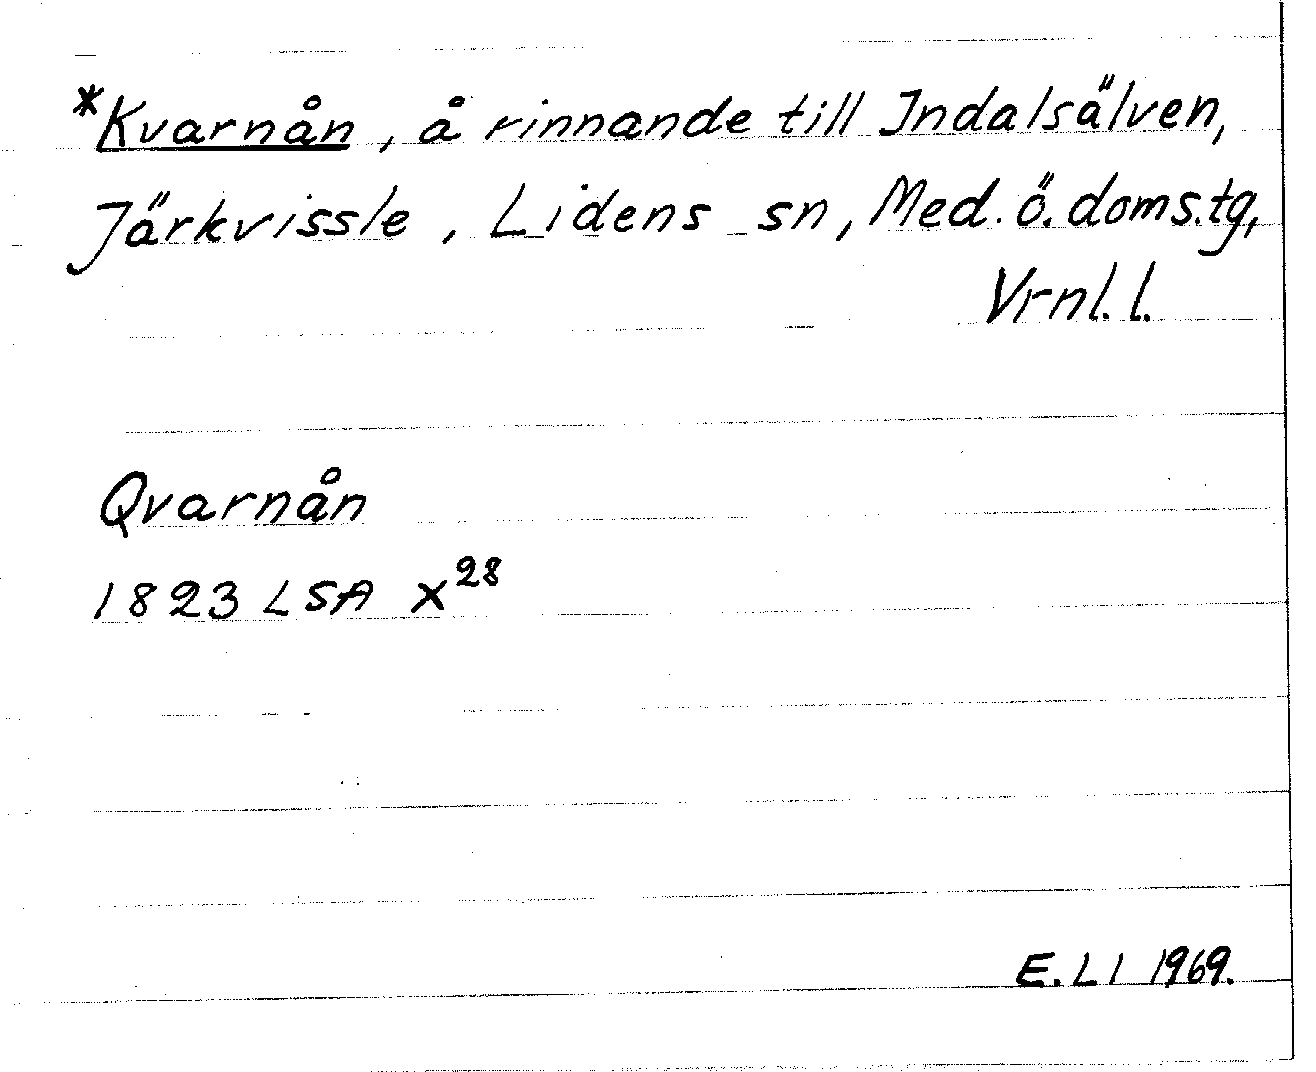 *Kvarnån, å rinnande till Indalsälven,
Järkvissle, Lidens sn, Med. ö. doms.tg,
Vrnl. l.
Qvarnån
1823 LSA X²⁸
E. L l 1969.